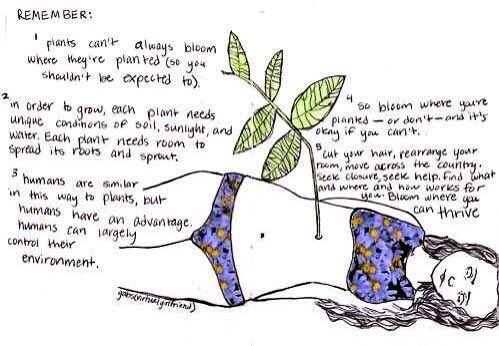 REMEMBER:
1 plants can't always bloom
where they're planted (so you
shouldn't be expected to).
2 in order to grow, each plant needs
unique conditions of soil, sunlight, and
water. Each plant needs room to
spread its roots and sprout.
3 humans are similar
in this way to plants, but
humans have an advantage.
humans can largely
control their
environment.
4 so bloom where you're
planted – or don't – and it's
okay if you can't.
5 cut your hair, rearrange your
room, move across the country.
seek closure, seek help. find what
and where and how works for
you. Bloom where you
can thrive